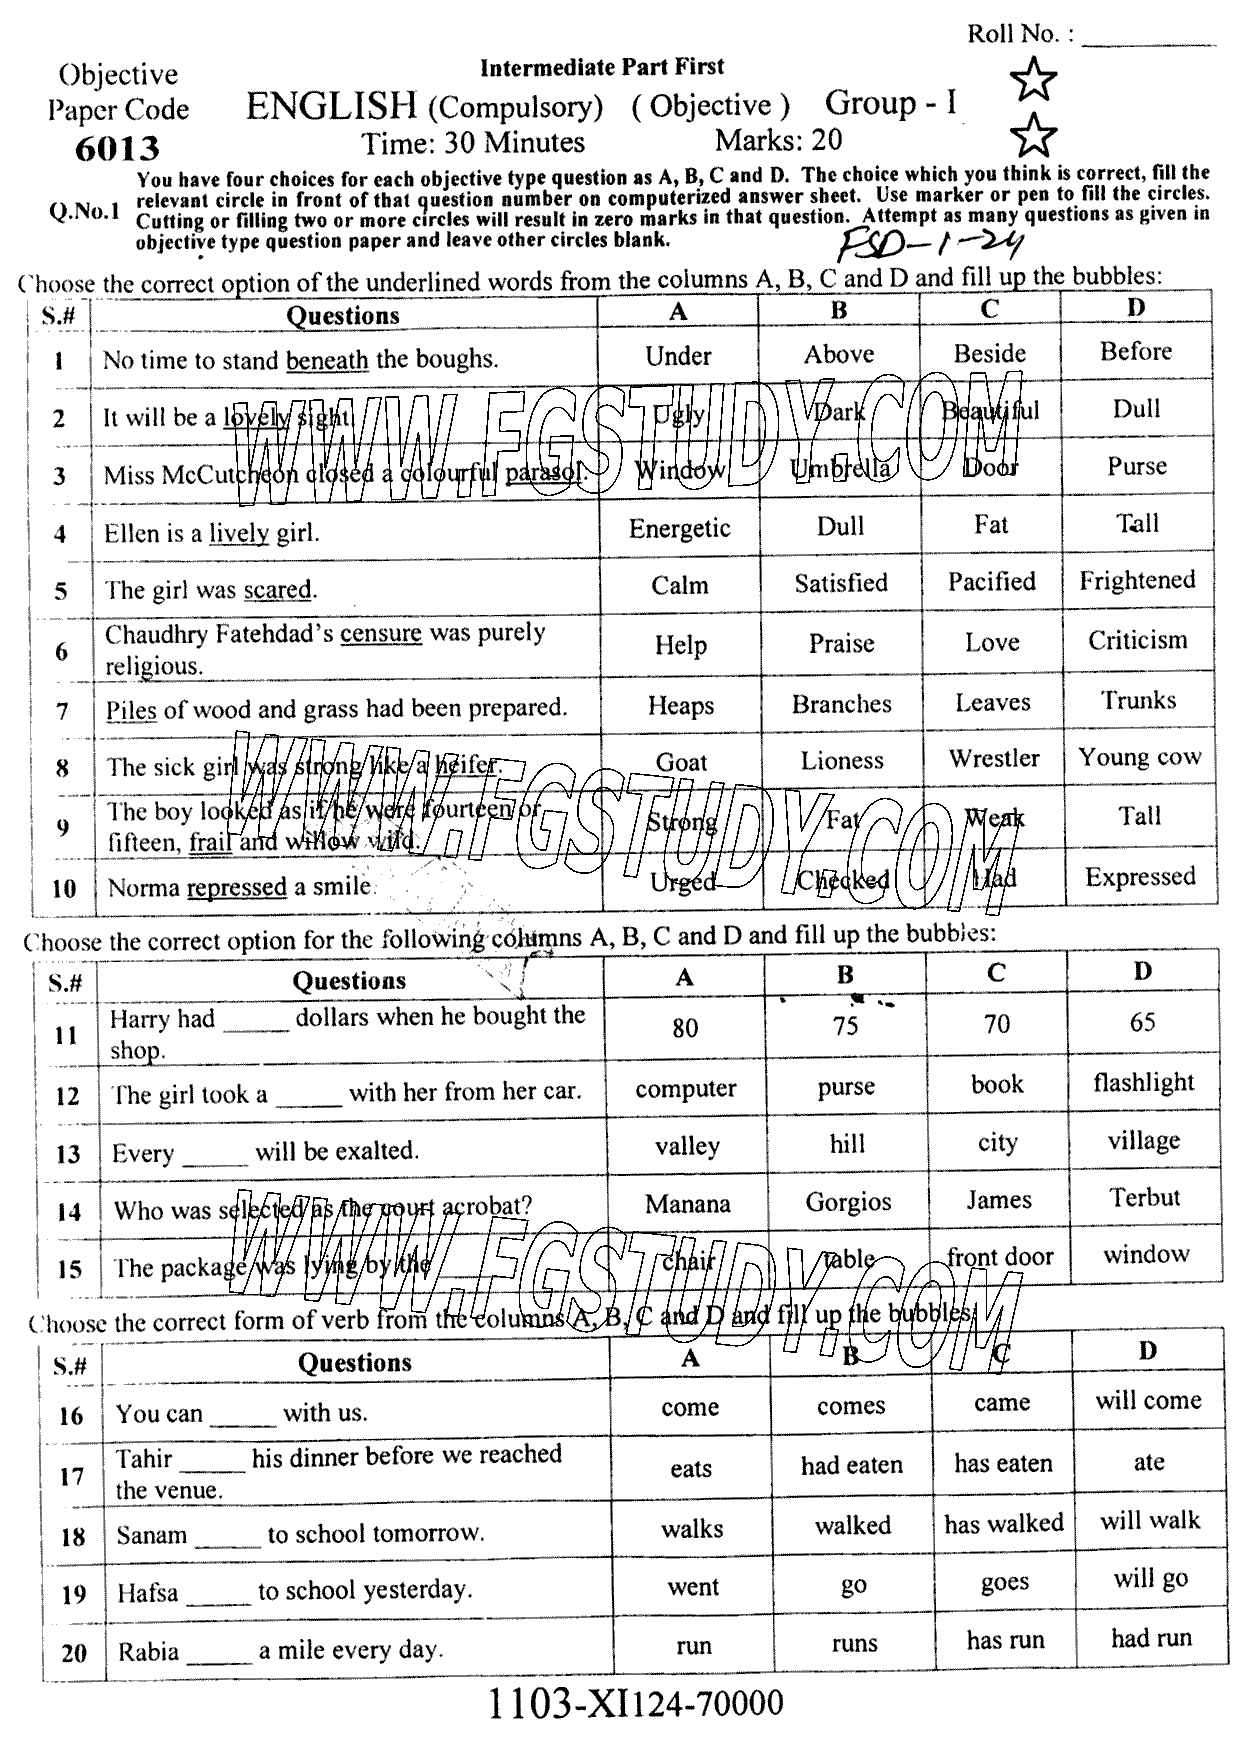 Roll No. :
Objective
Paper Code
6013
Intermediate Part First
ENGLISH (Compulsory) ( Objective ) Group - I
Time: 30 Minutes Marks: 20
Q.No.1 You have four choices for each objective type question as A, B, C and D. The choice which you think is correct, fill the
relevant circle in front of that question number on computerized answer sheet. Use marker or pen to fill the circles.
Cutting or filling two or more circles will result in zero marks in that question. Attempt as many questions as given in
objective type question paper and leave other circles blank.
FSD-1-24
Choose the correct option of the underlined words from the columns A, B, C and D and fill up the bubbles:
S.# Questions A B C D
1 No time to stand beneath the boughs. Under Above Beside Before
2 It will be a lovely sight. Ugly Dark Beautiful Dull
3 Miss McCutcheon closed a colourful parasol. Window Umbrella Door Purse
4 Ellen is a lively girl. Energetic Dull Fat Tall
5 The girl was scared. Calm Satisfied Pacified Frightened
6 Chaudhry Fatehdad's censure was purely
religious. Help Praise Love Criticism
7 Piles of wood and grass had been prepared. Heaps Branches Leaves Trunks
8 The sick girl was strong like a heifer. Goat Lioness Wrestler Young cow
9 The boy looked as if he were fourteen or
fifteen, frail and willow wild. Strong Fat Weak Tall
10 Norma repressed a smile. Urged Checked Had Expressed
Choose the correct option for the following columns A, B, C and D and fill up the bubbles:
S.# Questions A B C D
11 Harry had _____ dollars when he bought the
shop. 80 75 70 65
12 The girl took a _____ with her from her car. computer purse book flashlight
13 Every _____ will be exalted. valley hill city village
14 Who was selected as the court acrobat? Manana Gorgios James Terbut
15 The package was lying by the _____ chair table front door window
Choose the correct form of verb from the columns A, B, C and D and fill up the bubbles:
S.# Questions A B C D
16 You can _____ with us. come comes came will come
17 Tahir _____ his dinner before we reached
the venue. eats had eaten has eaten ate
18 Sanam _____ to school tomorrow. walks walked has walked will walk
19 Hafsa _____ to school yesterday. went go goes will go
20 Rabia _____ a mile every day. run runs has run had run
1103-XI124-70000
WWW.FGSTUDY.COM
WWW.FGSTUDY.COM
WWW.FGSTUDY.COM